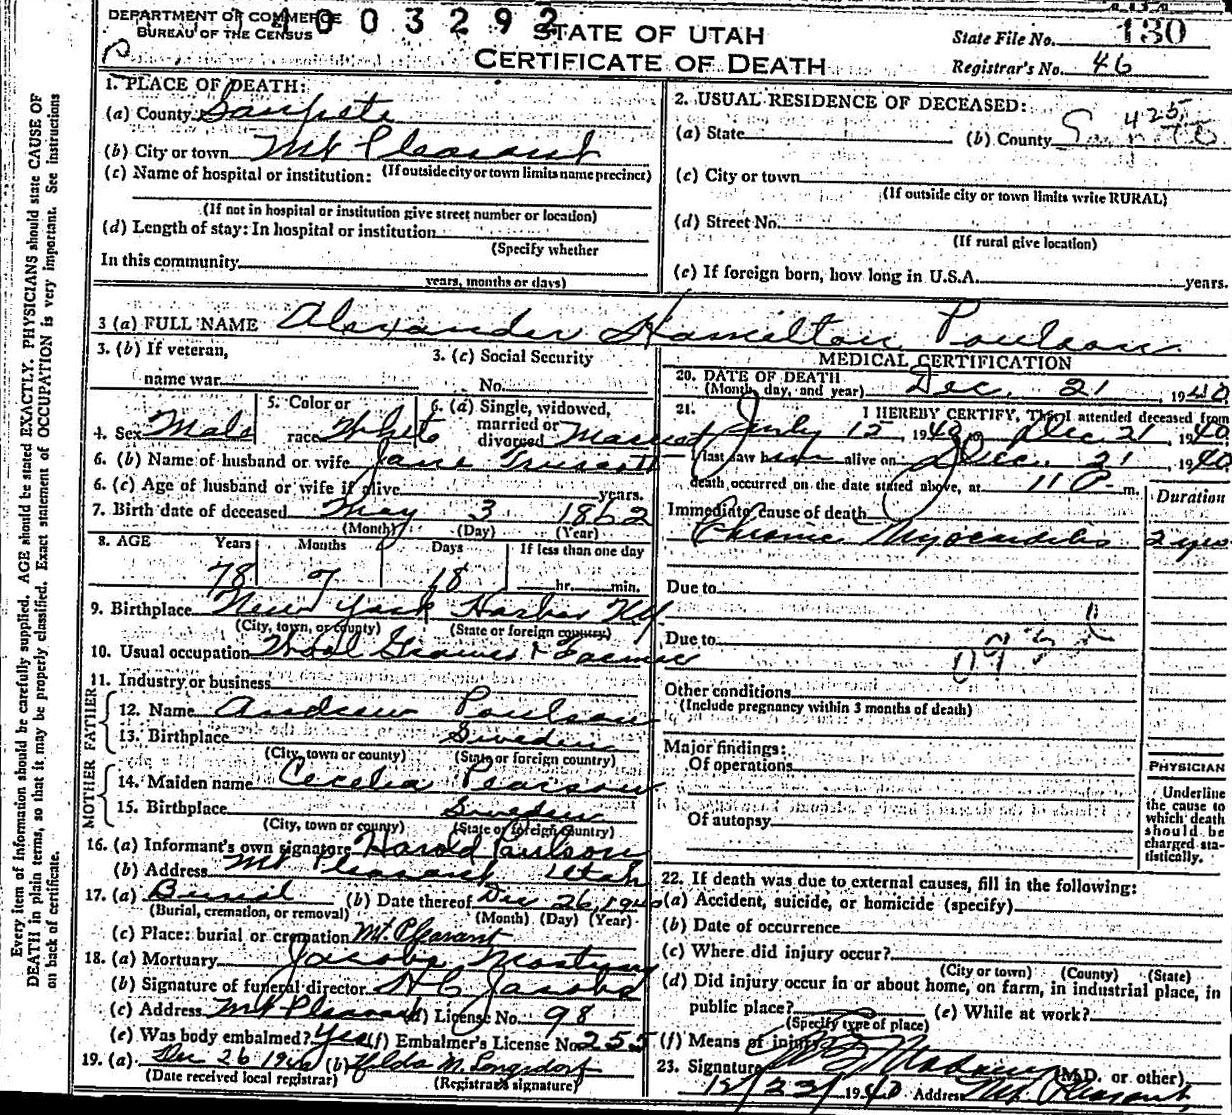 DEPARTMENT OF COMMERCE
BUREAU OF THE CENSUS
4003292
STATE OF UTAH
CERTIFICATE OF DEATH
State File No. 130
Registrar's No. 46
Every item of information should be carefully supplied. AGE should be stated EXACTLY. PHYSICIANS should state CAUSE OF
DEATH in plain terms, so that it may be properly classified. Exact statement of OCCUPATION is very important. See instructions
on back of certificate.
1. PLACE OF DEATH:
(a) County Sanpete
(b) City or town Mt Pleasant
(If outside city or town limits name precinct)
(c) Name of hospital or institution:
(If not in hospital or institution give street number or location)
(d) Length of stay: In hospital or institution
(Specify whether
In this community
years, months or days)
2. USUAL RESIDENCE OF DECEASED:
425
(a) State (b) County
(c) City or town
(If outside city or town limits write RURAL)
(d) Street No.
(If rural give location)
(e) If foreign born, how long in U.S.A. years.
3 (a) FULL NAME Alexander Hamilton Poulson
3. (b) If veteran,
name war
3. (c) Social Security
No.
4. Sex Male
5. Color or
race White
6. (a) Single, widowed,
married or
divorced Married
6. (b) Name of husband or wife Jane
6. (c) Age of husband or wife if alive years.
7. Birth date of deceased May 3 1862
(Month) (Day) (Year)
8. AGE Years Months Days If less than one day
78 7 18 hr. min.
9. Birthplace New York Harbor NY
(City, town, or county) (State or foreign country)
10. Usual occupation Wool Grower & Farmer
11. Industry or business
FATHER
12. Name Andrew Poulson
13. Birthplace Sweden
(City, town or county) (State or foreign country)
MOTHER
14. Maiden name Cecelia Pearson
15. Birthplace Sweden
(City, town or county) (State or foreign country)
16. (a) Informant's own signature Harold Poulson
(b) Address Mt Pleasant Utah
17. (a) Burial (b) Date thereof Dec 26, 1940
(Burial, cremation, or removal) (Month) (Day) (Year)
(c) Place: burial or cremation Mt. Pleasant
18. (a) Mortuary Jacobs Mortuary
(b) Signature of funeral director H C Jacobs
(c) Address Mt Pleasant (d) License No. 98
(e) Was body embalmed? Yes (f) Embalmer's License No. 255
19. (a) Dec 26 1940 (b) Hilda M. Longsdorf
(Date received local registrar) (Registrar's signature)
MEDICAL CERTIFICATION
20. DATE OF DEATH
(Month, day, and year) Dec. 21, 1940
21. I HEREBY CERTIFY, That I attended deceased from
July 15, 1940 to Dec 21, 1940
I last saw him alive on Dec. 21, 1940
death occurred on the date stated above, at 11 P. m.
Duration
Immediate cause of death
Chronic Myocarditis 2 yrs
Due to
Due to
Other conditions
(Include pregnancy within 3 months of death)
Major findings:
Of operations
Of autopsy
PHYSICIAN
Underline
the cause to
which death
should be
charged sta-
tistically.
22. If death was due to external causes, fill in the following:
(a) Accident, suicide, or homicide (specify)
(b) Date of occurrence
(c) Where did injury occur?
(City or town) (County) (State)
(d) Did injury occur in or about home, on farm, in industrial place, in
public place? (e) While at work?
(Specify type of place)
(f) Means of injury
23. Signature (M.D. or other)
12/23/1940 Address Mt. Pleasant